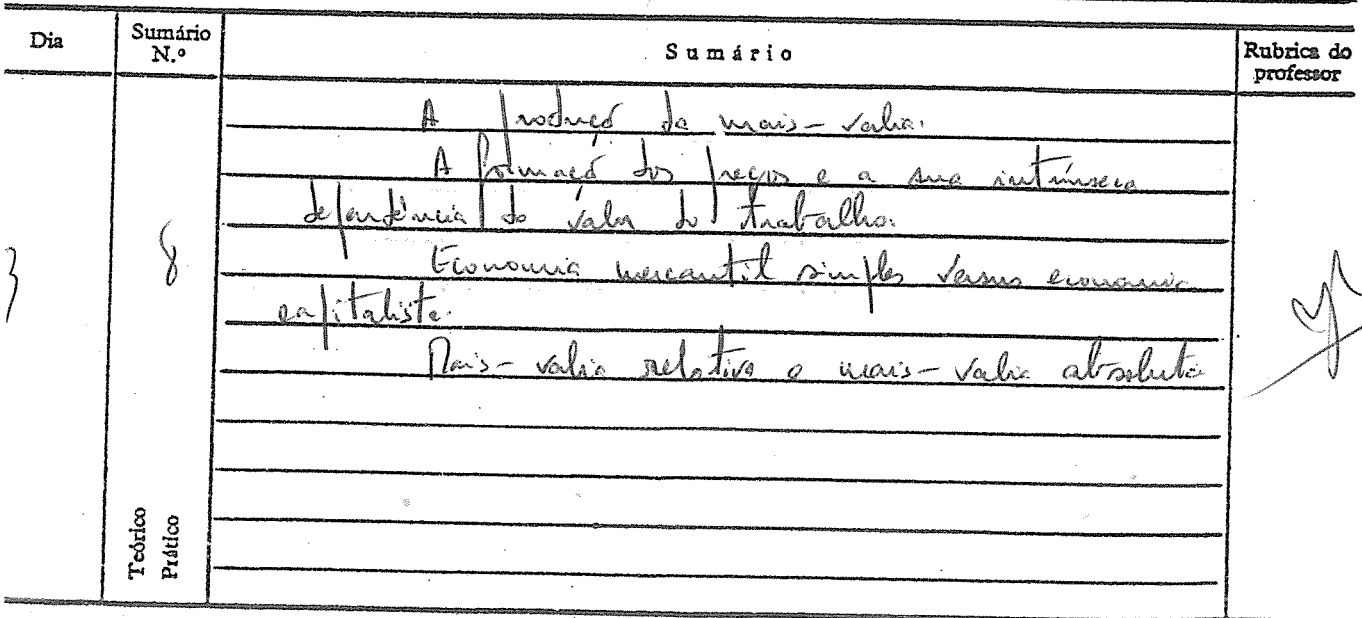 Dia Sumário N.º Sumário Rubrica do professor
A produçã da mais-valia.
A formaçã dos preços e a sua intrínseca
dependência do valor do trabalho.
Economia mercantil simples versus economia
capitalista.
Mais-valia relativa e mais-valia absoluta
8
Teórico
Prático